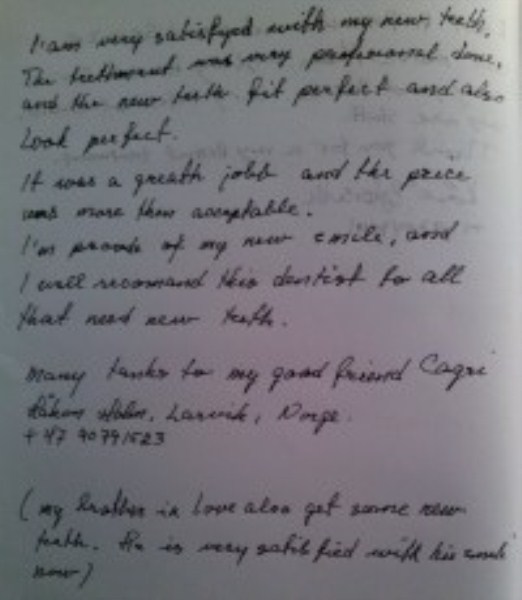 I'am very satisfyed with my new teeth.
The trettment was very professional done,
and the new teeth fit perfect and also
look perfect.
It was a greath jobb and the price
was more then acceptable.
I'm proude of my new smile, and
I will recomand this dentist to all
that need new teeth.
Many tanks to my good friend Cagri
Håkon Holm, Larvik, Norge.
+47 90791523
(my brother in love also get some new
teeth. He is very satisfied with his smile
now)